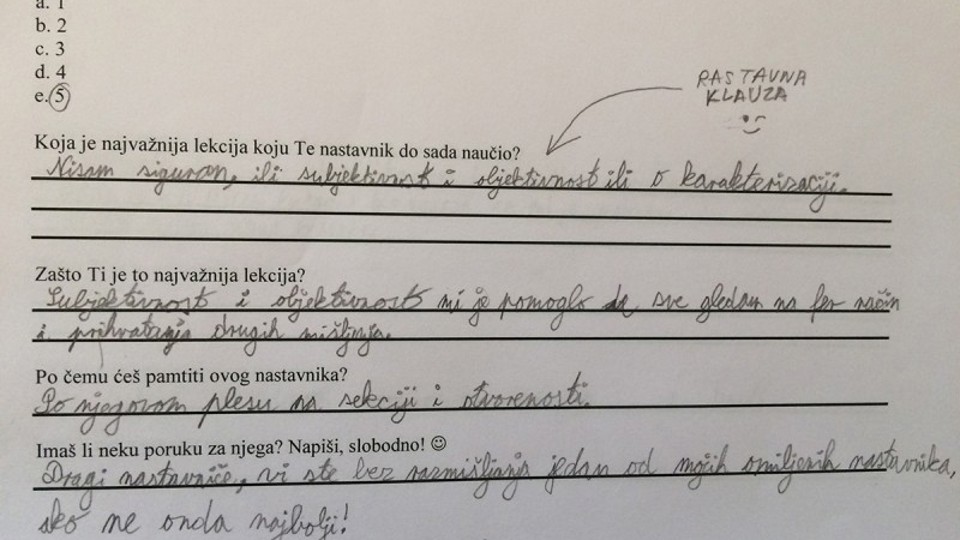 a. 1
b. 2
c. 3
d. 4
e. 5
RASTAVNA
KLAUZA
Koja je najvažnija lekcija koju Te nastavnik do sada naučio?
Nisam siguran, ili subjektivnost i objektivnost ili o karakterizaciji.
Zašto Ti je to najvažnija lekcija?
Subjektivnost i objektivnost mi je pomoglo da sve gledam na fer način
i prihvatanja drugih mišljnja.
Po čemu ćeš pamtiti ovog nastavnika?
Po njegovom plesu na sekciji i otvorenosti.
Imaš li neku poruku za njega? Napiši, slobodno! ☺
Dragi nastavniče, vi ste bez razmišljanja jedan od mojih omiljenih nastavnika,
ako ne onda najbolji!